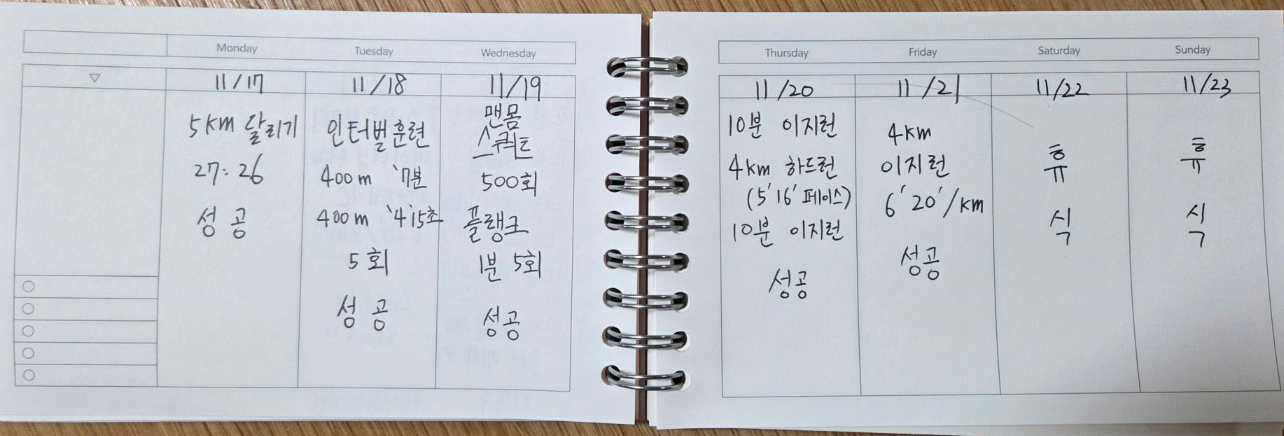 Monday
Tuesday
Wednesday
11/17
11/18
11/19
5km 달리기
27:26
성공
인터벌훈련
400m `7분
400m `4'15초
5회
성공
맨몸
스쿼트
500회
플랭크
1분 5회
성공
Thursday
Friday
Saturday
Sunday
11/20
11/21
11/22
11/23
10분 이지런
4km 하드런
(5'16' 페이스)
10분 이지런
성공
4km
이지런
6'20'/km
성공
휴
식
휴
식